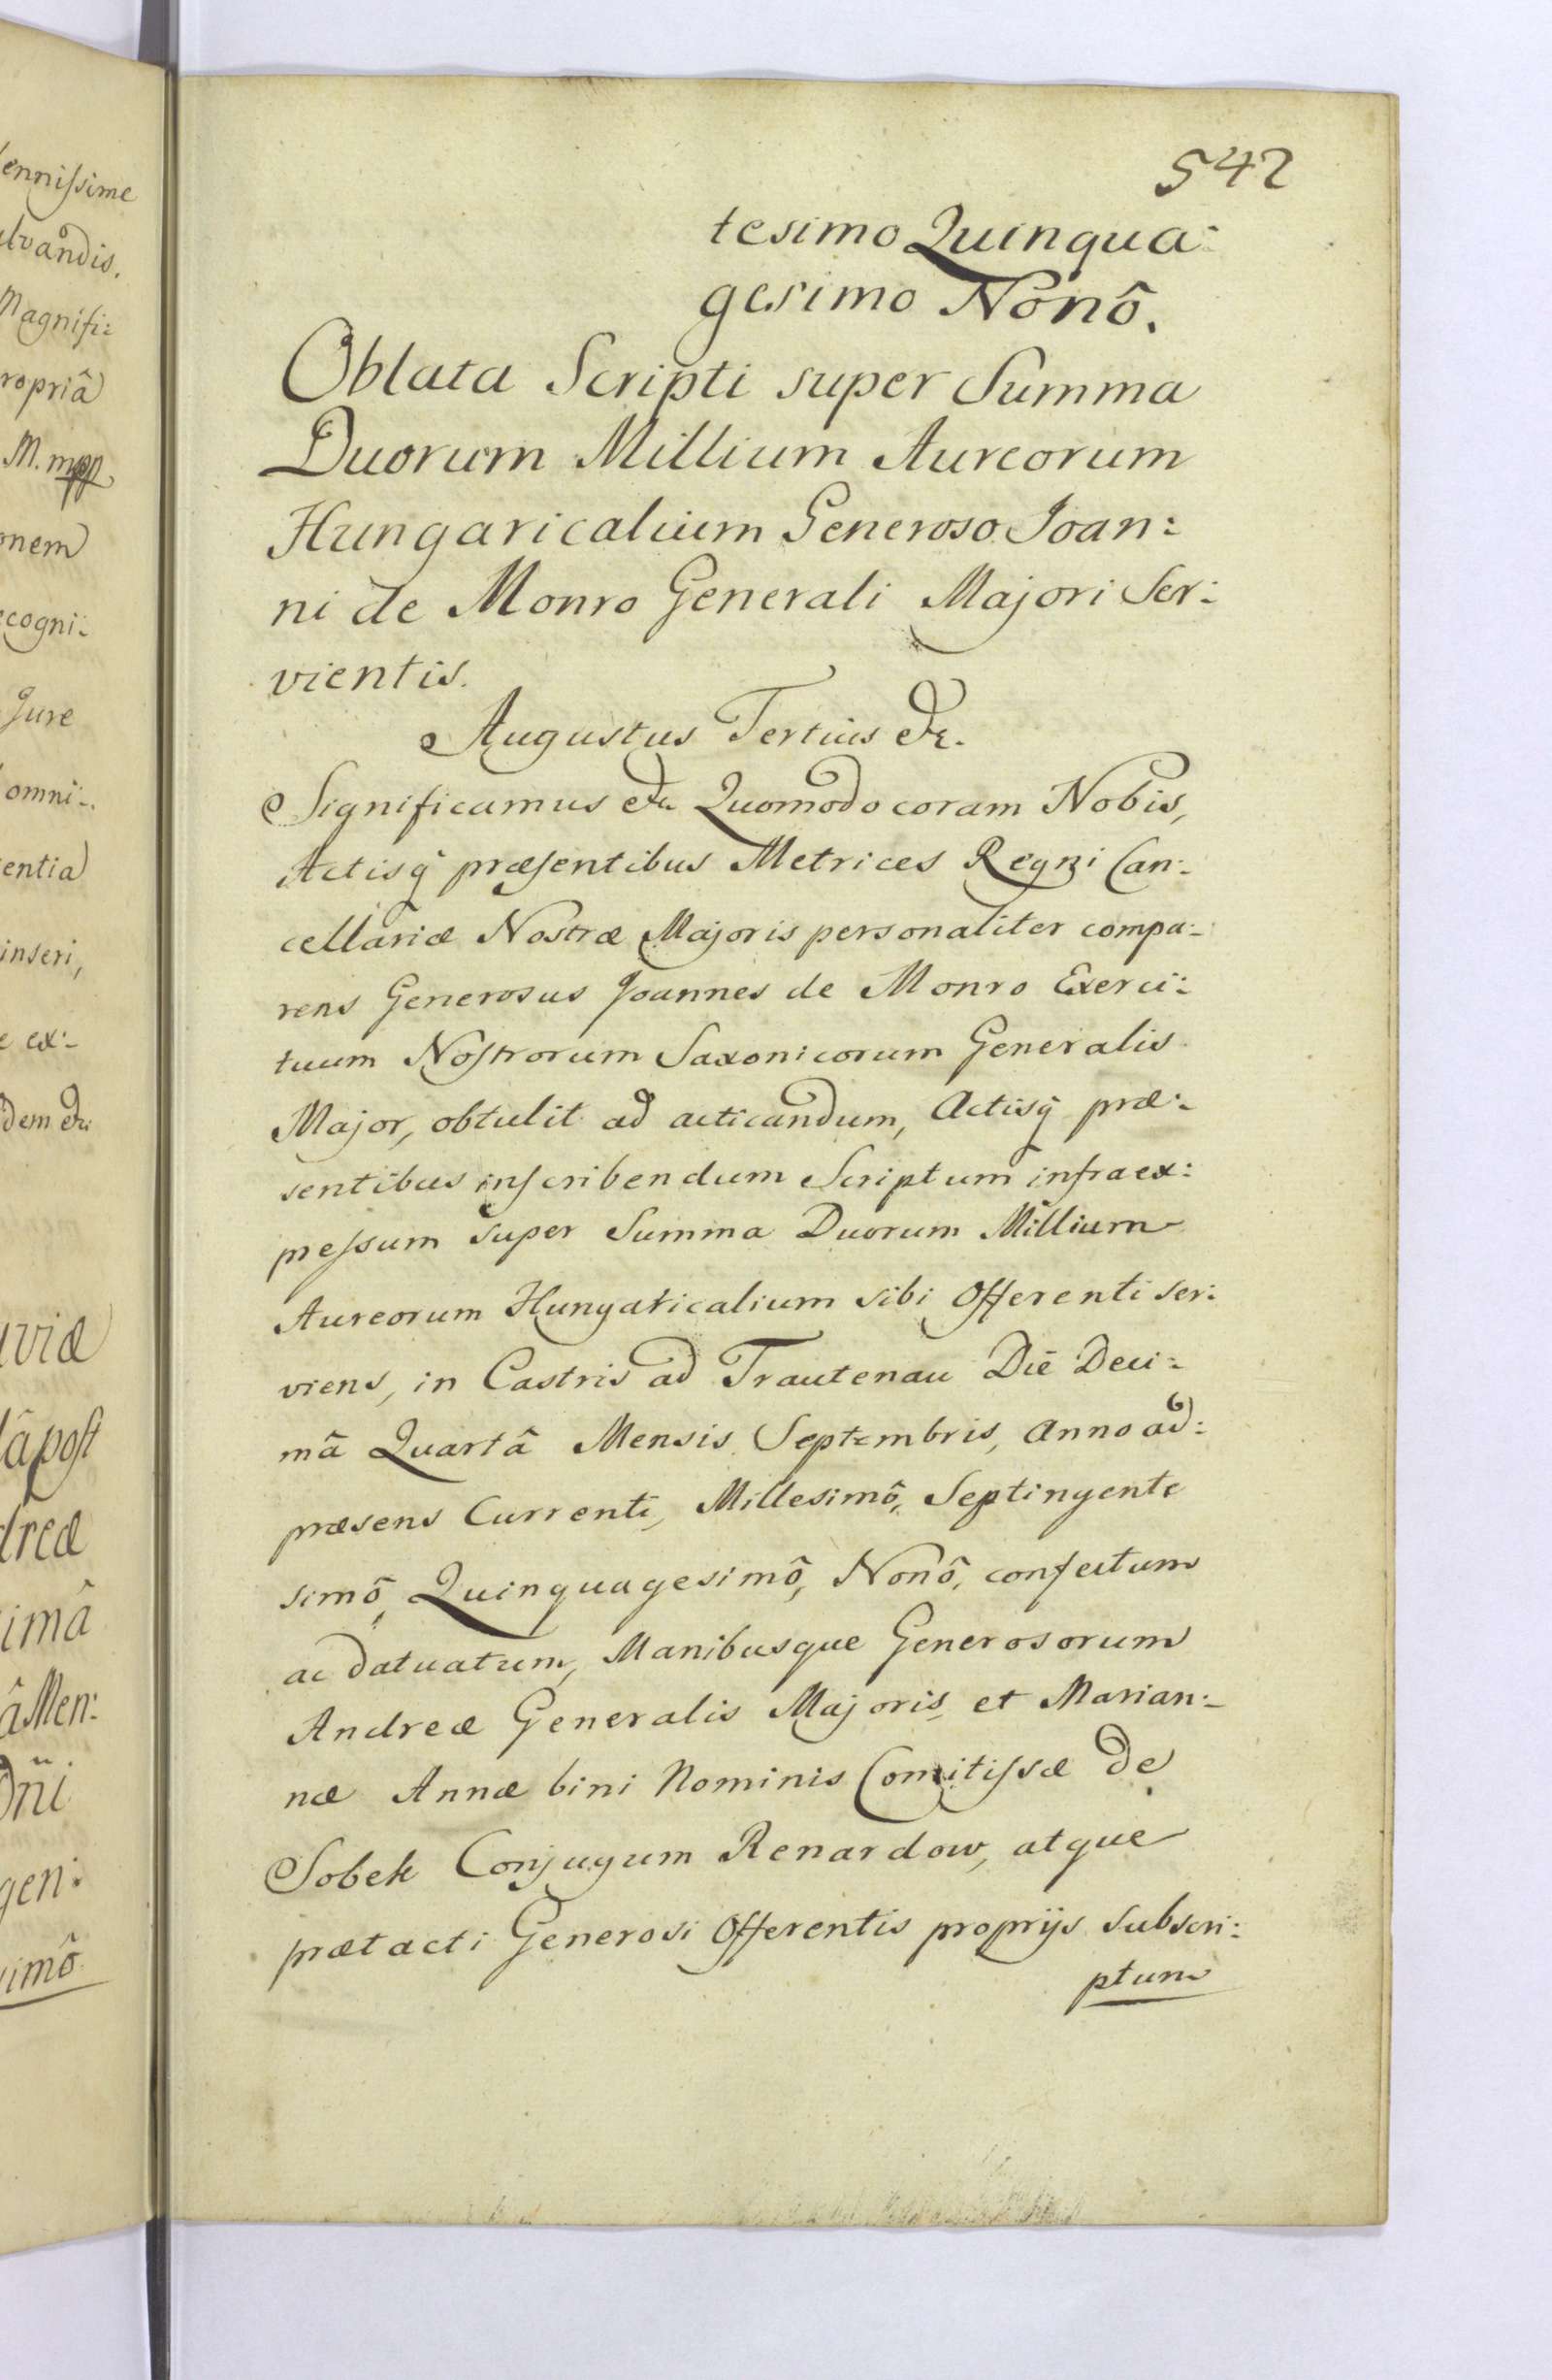 542
tesimo Quinqua:
gesimo Nonô.
Oblata Scripti super Summa
Duorum Millium Aureorum
Hungaricalium Generoso Joan:
ni de Monro Generali Majori Ser:
vientis.
Augustus Tertius &c.
Significamus &c. Quomodo coram Nobis,
Actisq præsentibus Metrices Regni Can:
cellariæ Nostræ Majoris personaliter compa:
rens Generosus Joannes de Monro Exerci:
tuum Nostrorum Saxonicorum Generalis
Major, obtulit ad acticandum, Actisq præ:
sentibus inscribendum Scriptum infraex:
pressum super Summa Duorum Millium
Aureorum Hungaricalium sibi Offerenti ser:
viens, in Castris ad Trautenau Die Deci:
mâ Quartâ Mensis Septembris, Anno ad:
præsens Currenti, Millesimô, Septingente
simô, Quinquagesimô, Nonô, confectum
ac datuatum, Manibusque Generosorum
Andreæ Generalis Majoris, et Marian:
næ Annæ bini Nominis Comitissæ De
Sobek Conjugum Renardow, atque
prætacti Generosi Offerentis proprijs subscri:
ptum
ennissime
alvandis.
Magnifi:
ropriâ
M. mpp.
onem
ecogni:
Jure
omni:
entia
inseri,
e ex:
dem &c.
viæ
lâ post
dreæ
imâ
â Men:
Dñi
gen:
imô